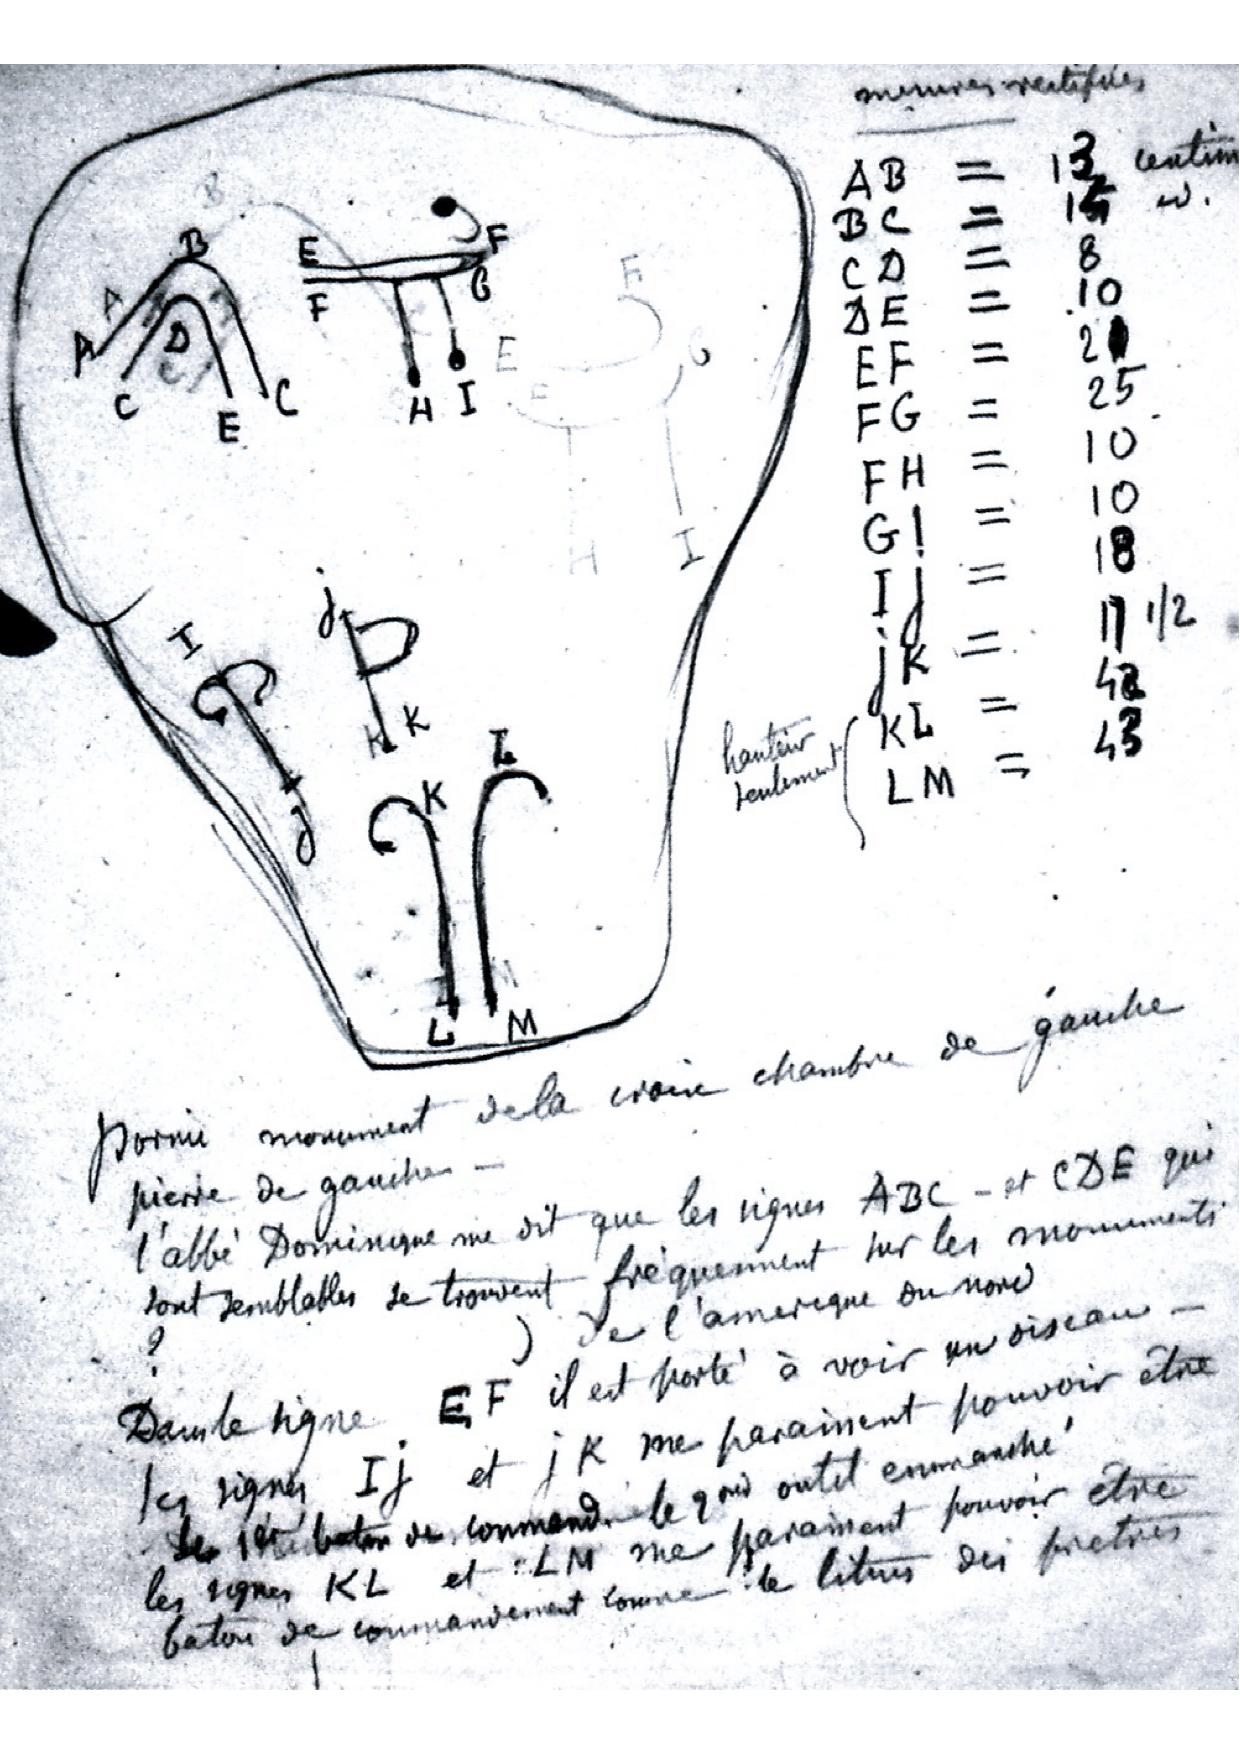 mesures rectifiées
AB = 13 centim
BC = 15 id.
CD = 8
DE = 10
EF = 21
FG = 25
FH = 10
GI = 10
Ij = 18
jK = 17 1/2
hauteur
seulement
KL = 42
LM = 43
B
A
A
B
D
C
C
E
C
E
F
F
G
H
I
F
E
E
G
H
I
I
j
j
K
K
K
L
L
L
M
M
pornic monument de la croix chambre de gauche
pierre de gauche —
l'abbé Dominique me dit que les signes ABC - et CDE qui
sont semblables se trouvent fréquemment sur les monuments
? ) de l'amerique du nord
Dans le signe EF il est porté à voir un oiseau —
les signes Ij et jK me paraissent pouvoir être
le 1er baton de command. le 2me outil emmanché
les signes KL et LM me paraissent pouvoir être
baton de commandement comme le lituus des pretres